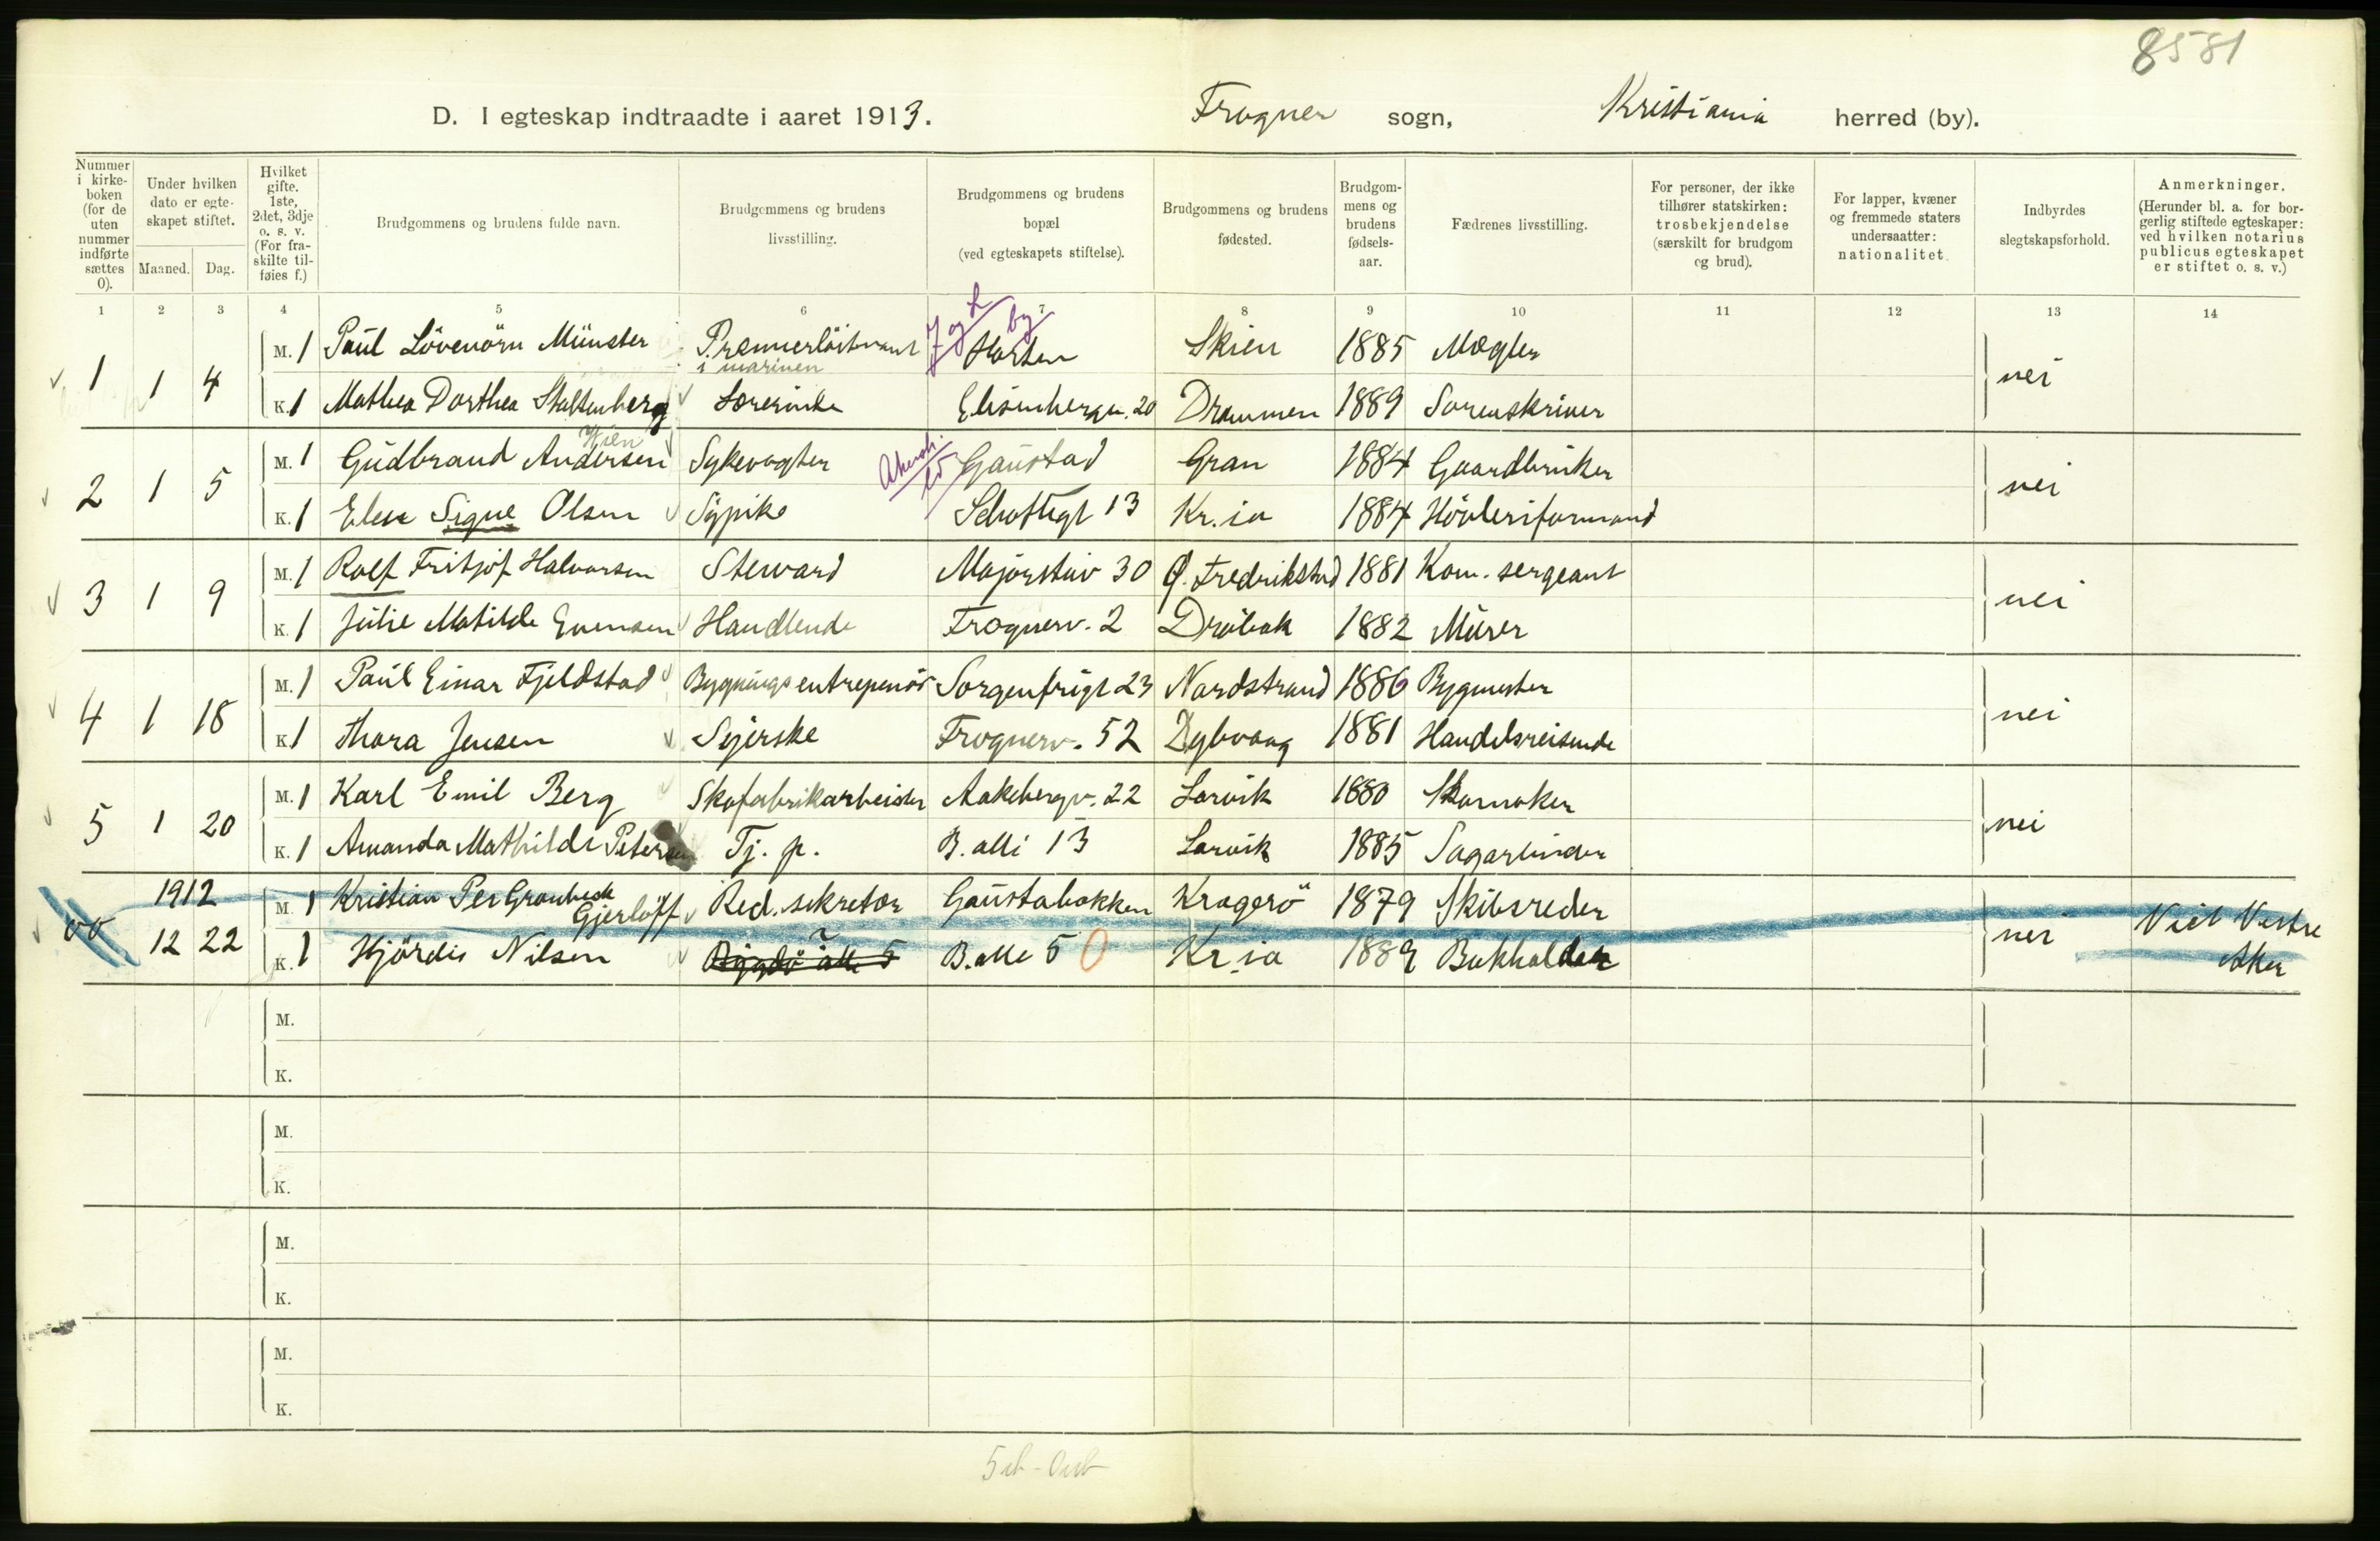 8581
D. I egteskap indtraadte i aaret 1913. Frogner sogn, Kristiania herred (by).
Nummer i kirke-boken (for de uten nummer indførte sættes 0).
Under hvilken dato er egte-skapet stiftet.
Maaned. Dag.
Hvilket gifte. 1ste, 2det, 3dje o. s. v. (For fra-skilte til-føies f.)
Brudgommens og brudens fulde navn.
Brudgommens og brudens livsstilling.
Brudgommens og brudens bopæl (ved egteskapets stiftelse).
Brudgommens og brudens fødested.
Brudgom-mens og brudens fødsels-aar.
Fædrenes livsstilling.
For personer, der ikke tilhører statskirken: trosbekjendelse (særskilt for brudgom og brud).
For lapper, kvæner og fremmede staters undersaatter: nationalitet.
Indbyrdes slegtskapsforhold.
Anmerkninger. (Herunder bl. a. for bor-gerlig stiftede egteskaper: ved hvilken notarius publicus egteskapet er stiftet o. s. v.)
1 2 3 4 5 6 7 8 9 10 11 12 13 14
1 1 4 M. 1 Paul Lövenörn Münster Premierlöitnant i marinen Horten Skien 1885 Mægler nei
K. 1 Mathea Dorthea Stoltenberg Lærerinde Elisenbergv. 20 Drammen 1889 Sorenskriver
2 1 5 M. 1 Gudbrand Andersen Wien Sykevogter Gaustad Gran 1884 Gaardbruker nei
K. 1 Elen Signe Olsen Sypike Schultzgt 13 Kr.ia 1884 Hövleriformand
3 1 9 M. 1 Rolf Fritjof Halvorsen Steward Majorstuv 30 Ø. Fredrikstad 1881 Kom. sergeant nei
K. 1 Julie Matilde Evensen Handlende Frognerv. 2 Dröbak 1882 Murer
4 1 18 M. 1 Paul Einar Fjeldstad Bygningsentrepenör Sorgenfrigt 23 Nordstrand 1886 Bygmester nei
K. 1 Thora Jensen Syerske Frognerv. 52 Dybvaag 1881 Handelsreisende
5 1 20 M. 1 Karl Emil Berg Skofabrikarbeider Aakebergv. 22 Larvik 1880 Skomaker nei
K. 1 Amanda Mathilde Petersen Tj. p. B. alle 13 Larvik 1885 Sagarbeider
00 1912 12 22 M. 1 Kristian Per Grønbeck Gjerløff Red. sekretær Gaustabakken Kragerö 1879 Skibsreder nei Viet Vestre Aker
K. 1 Hjördis Nilsen Bygdö alle 5 B. alle 5 0 Kr.ia 1889 Bokholder
M.
K.
M.
K.
M.
K.
M.
K.